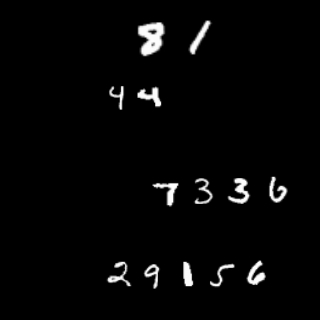 81
44
7336
29156